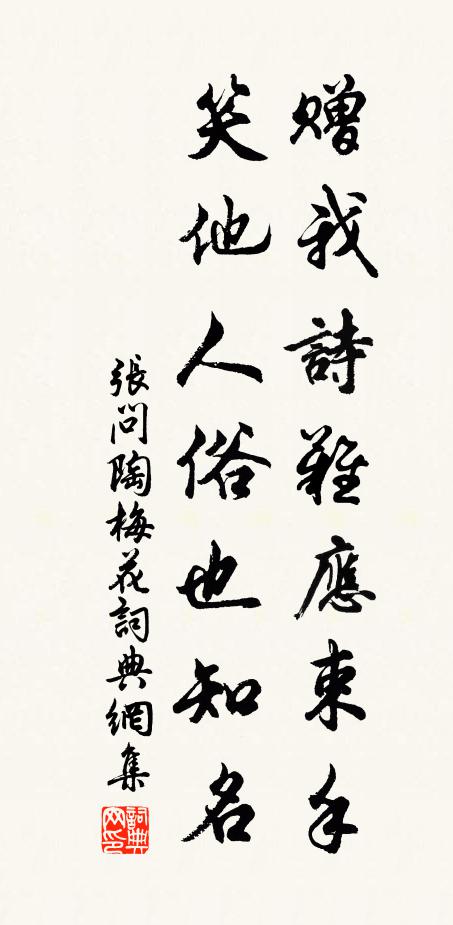 贈我詩難應束手
笑他人俗也知名
張問陶梅花詞典網集
詞典網印